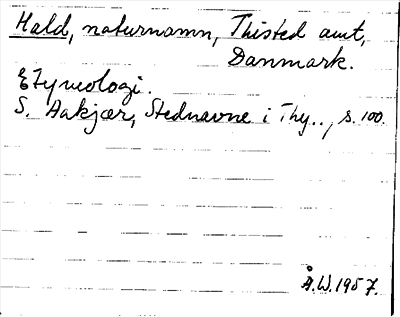 Hald, naturnamn, Thisted amt,
Danmark.
Etymologi.
S. Aakjær, Stednavne i Thy.., s. 100.
Å.W. 1957.